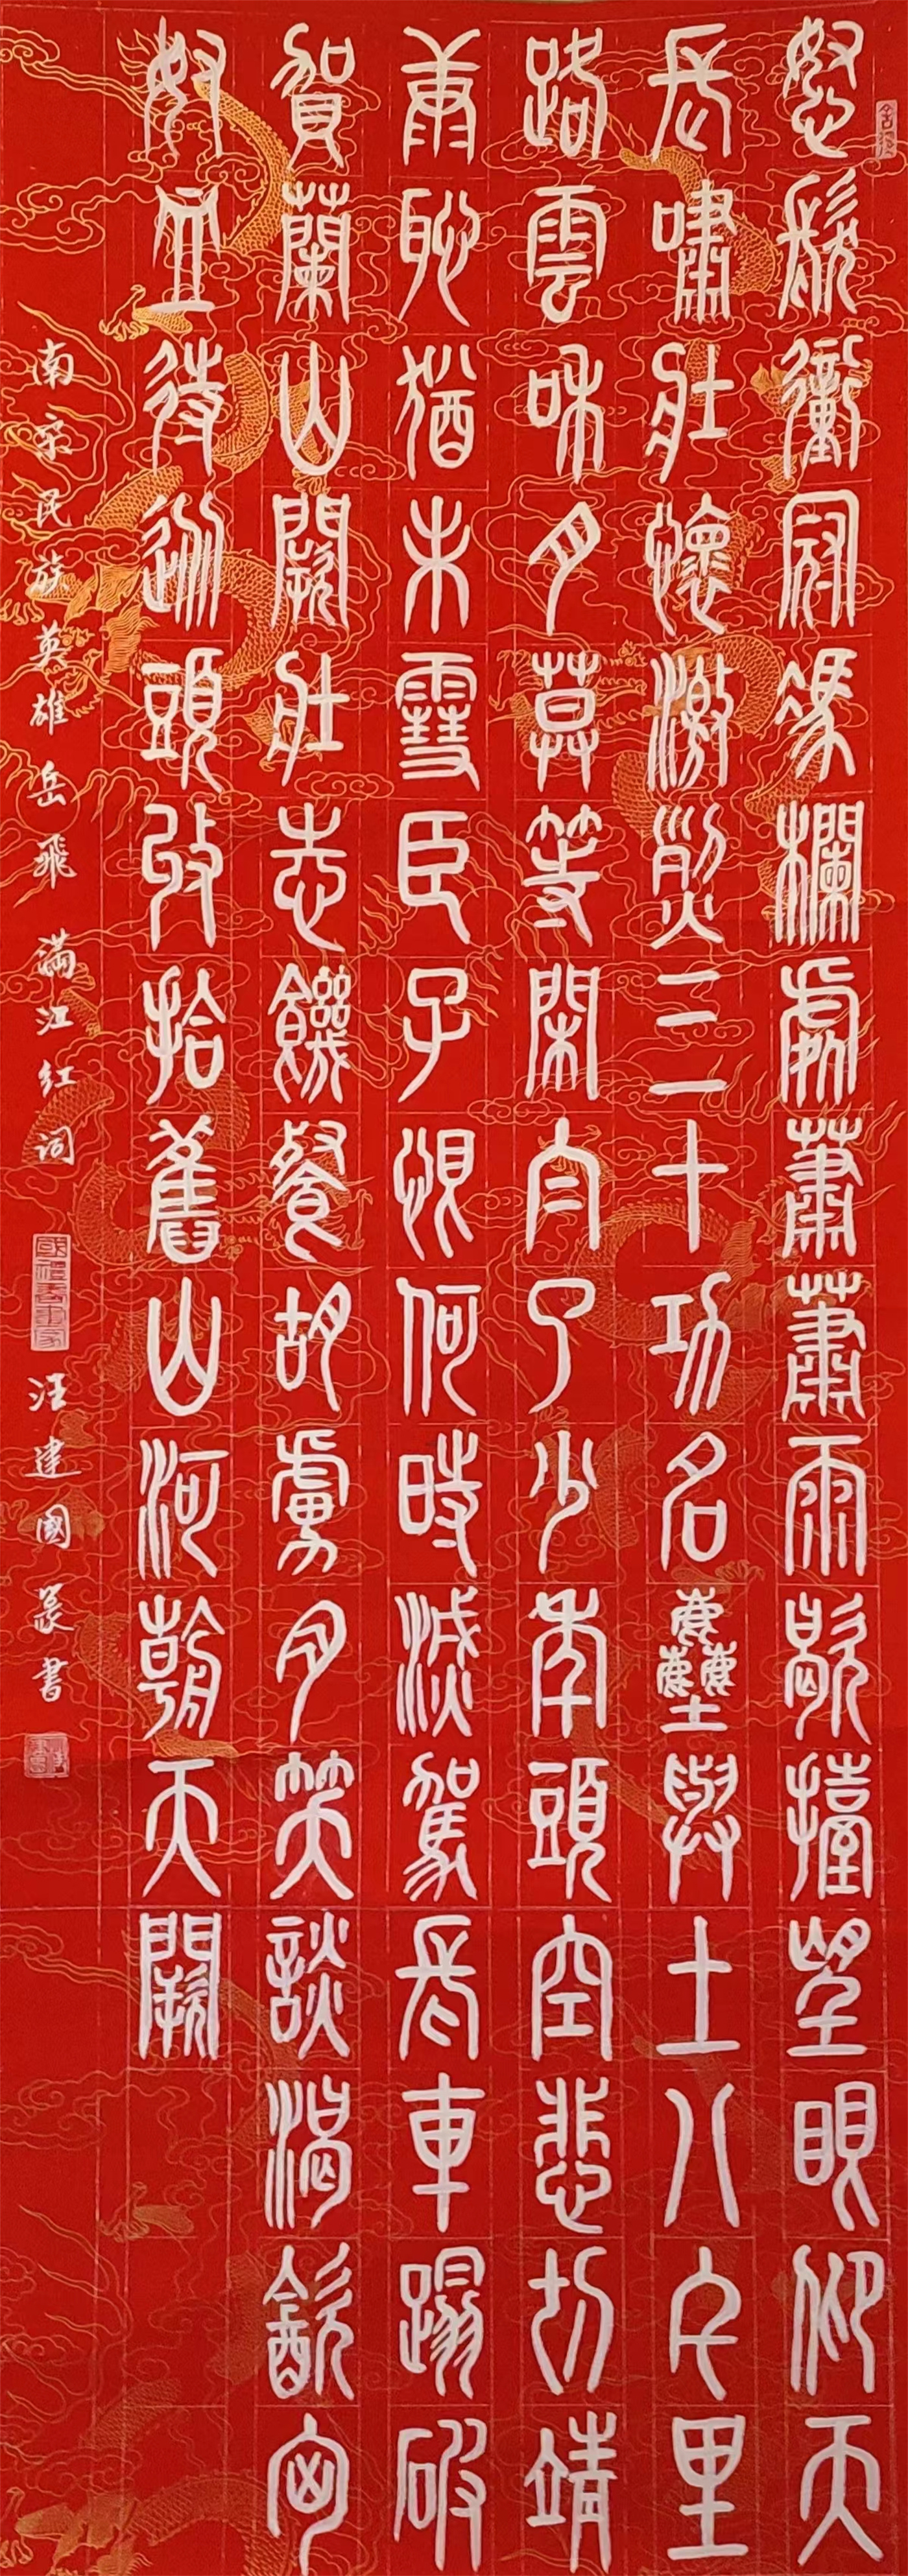 怒髮衝冠馮欄處蕭蕭雨歇擡望眼仰天
長嘯壯懷激烈三十功名塵與土八千里
路雲和月莫等閑白了少年頭空悲切靖
康恥猶未雪臣子恨何時滅駕長車踏破
賀蘭山闕壯志饑餐胡虜肉笑談渴飲匈
奴血待從頭收拾舊山河朝天闕
南宋民族英雄岳飛 满江红词 汪建國篆書